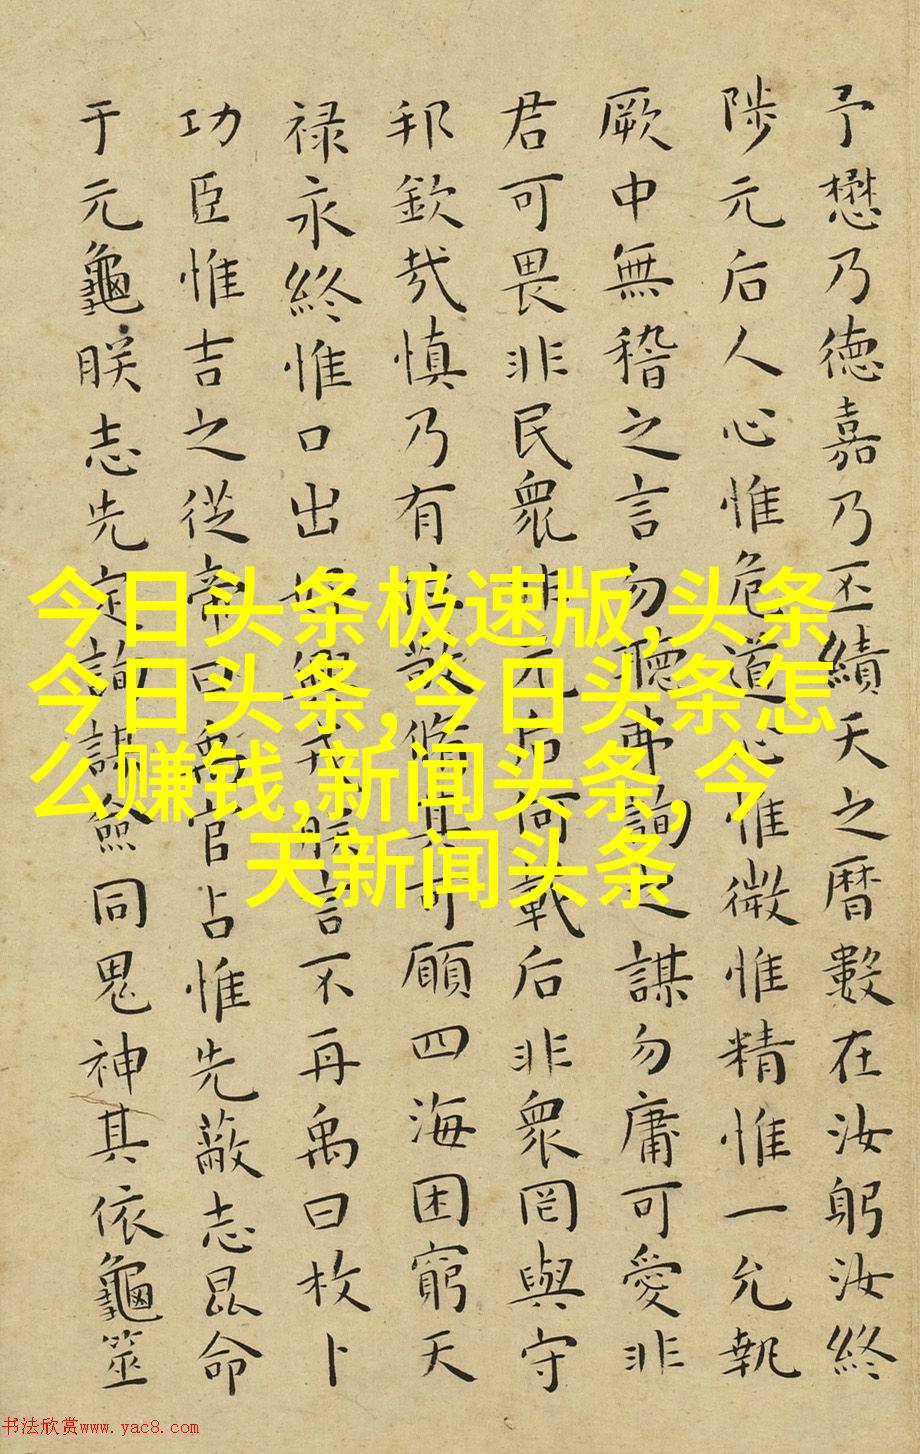 予懋乃德嘉乃丕績天之曆數在汝躬汝終
陟元后人心惟危道心惟微惟精惟一允執
厥中無稽之言勿聽弗詢之謀勿庸可愛非
君可畏非民衆非元后何戴后非衆罔與守
邦欽哉慎乃有位敬修其可願四海困窮天
禄永終惟口出好興戎朕言不再禹曰枚卜
功臣惟吉之從帝曰禹官占惟先蔽志昆命
于元龜朕志先定詢謀僉同鬼神其依龜筮
今日头条极速版,头条
今日头条,今日头条怎
么赚钱,新闻头条,今
天新闻头条
书法欣赏www.yac8.com